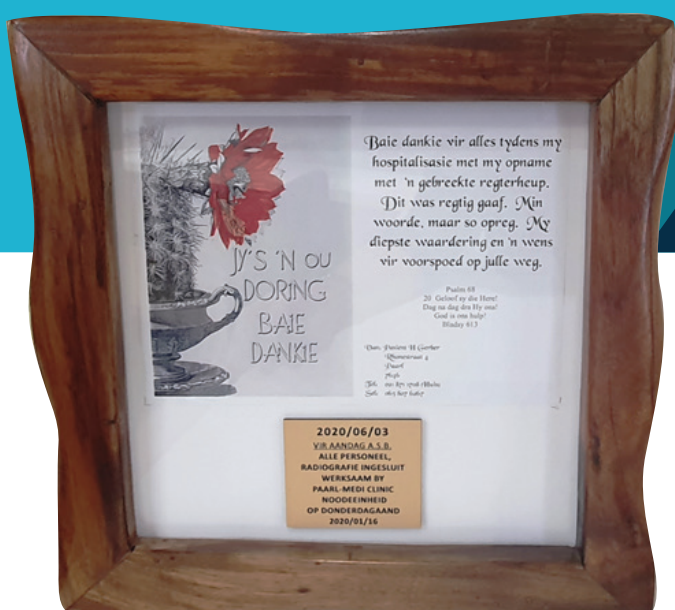 JY'S 'N OU
DORING
BAIE
DANKIE
Baie dankie vir alles tydens my
hospitalisasie met my opname
met 'n gebreekte regterheup.
Dit was regtig gaaf. Min
woorde, maar so opreg. My
diepste waardering en 'n wens
vir voorspoed op julle weg.
Psalm 68
20 Geloof sy die Here!
Dag na dag dra Hy ons!
God is ons hulp!
Bladsy 613
Van: Pasiënt H Gerber
Paarl
Tel:
Sel:
2020/06/03
VIR AANDAG A.S.B.
ALLE PERSONEEL,
RADIOGRAFIE INGESLUIT
WERKSAAM BY
PAARL-MEDI CLINIC
NOODEENHEID
OP DONDERDAGAAND
2020/01/16